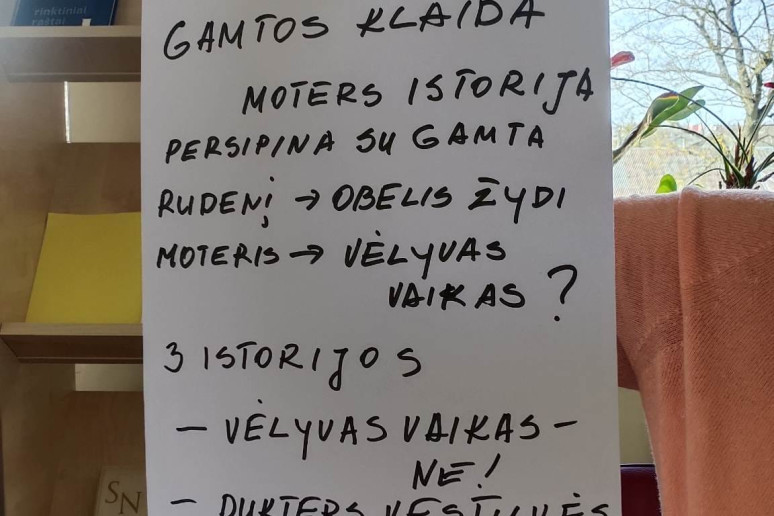 rinktiniai
raštai
GAMTOS KLAIDA
MOTERS ISTORIJA
PERSIPINA SU GAMTA
RUDENĮ → OBELIS ŽYDI
MOTERIS → VĖLYVAS
VAIKAS ?
3 ISTORIJOS
– VĖLYVAS VAIKAS –
NE!
– DUKTERS VESTUVĖS
SN